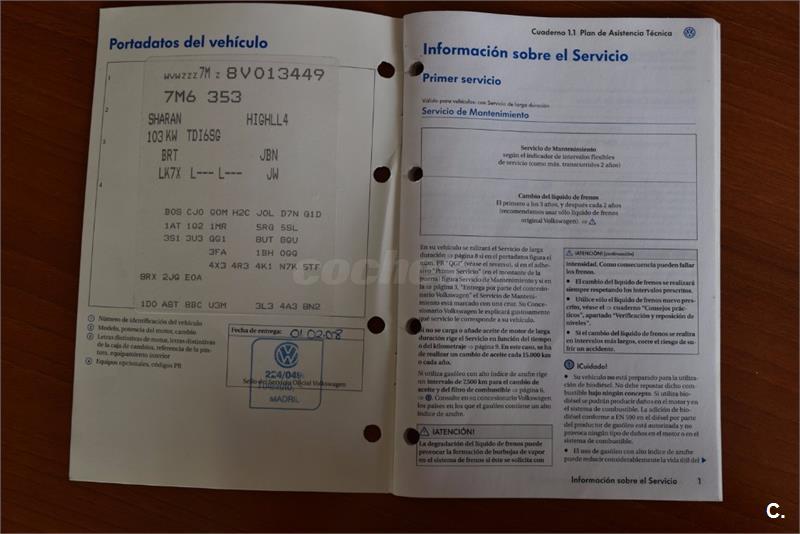 Portadatos del vehículo
1
WVWZZZ 7M Z 8V013449
7M6 353
2
SHARAN HIGHLL4
103 KW TDI6SG
3
BRT JBN
LK7X L--- L--- JW
4
BOS CJO QOM H2C JOL D7N Q1D
1AT 1Q2 1MR 5RG 5SL
3S1 3U3 QG1 8UT 8QU
3FA 1BH 0GG
4X3 4R3 4K1 N7K 5TF
8RX 2JQ EOA
1DO A8T BBC U3M 3L3 4A3 8N2
① Número de identificación del vehículo
② Modelo, potencia del motor, cambio
③ Letras distintivas de motor, letras distintivas
de la caja de cambios, referencia de la pin-
tura, equipamiento interior
④ Equipos opcionales, códigos PR
Fecha de entrega: 01.02.08
224/049
Sello del Servicio Oficial Volkswagen
MADRID
Cuaderno 1.1 Plan de Asistencia Técnica
Información sobre el Servicio
Primer servicio
Válido para vehículos: con Servicio de larga duración
Servicio de Mantenimiento
Servicio de Mantenimiento
según el indicador de intervalos flexibles
de servicio (como más, transcurridos 2 años)
Cambio del líquido de frenos
El primero a los 3 años, y después cada 2 años
(recomendamos usar sólo líquido de frenos
original Volkswagen). ⇒ ⚠
En su vehículo se ralizará el Servicio de larga
duración ⇒ página 8 si en el portadatos figura el
núm. PR "QG1" (véase el reverso), si en el adhe-
sivo "Primer Servicio" (en el montante de la
puerta) figura Servicio de Mantenimiento y si en
la ⇒ página 3, "Entrega por parte del concesio-
nario Volkswagen" el Servicio de Manteni-
miento está marcado con una cruz. Su Conce-
sionario Volkswagen le explicará gustosamente
qué servicio le corresponde a su vehículo.
Si no se carga o añade aceite de motor de larga
duración rige el Servicio en función del tiempo
o del kilometraje ⇒ página 9. En este caso, se ha
de realizar un cambio de aceite cada 15.000 km
o cada año.
Si utiliza gasóleo con alto índice de azufre rige
un intervalo de 7.500 km para el cambio de
aceite y del filtro de combustible ⇒ página 6,
⇒ ①. Consulte en su concesionario Volkswagen
los países en los que el gasóleo contiene un alto
índice de azufre.
⚠ ¡ATENCIÓN!
La degradación del líquido de frenos puede
provocar la formación de burbujas de vapor
en el sistema de frenos si éste se solicita con
⚠ ¡ATENCIÓN! (continuación)
intensidad. Como consecuencia pueden fallar
los frenos.
• El cambio del líquido de frenos se realizará
siempre respetando los intervalos prescritos.
• Utilice sólo el líquido de frenos nuevo pres-
crito, véase el ⇒ cuaderno "Consejos prác-
ticos", apartado "Verificación y reposición de
niveles".
• Si el cambio del líquido de frenos se realiza
en intervalos más largos, corre el riesgo de su-
frir un accidente.
① ¡Cuidado!
• Su vehículo no está preparado para la utiliza-
ción de biodiésel. No debe repostar dicho com-
bustible bajo ningún concepto. Si utiliza bio-
diésel se podrán producir daños en el motor y en
el sistema de combustible. La adición de bio-
diésel conforme a EN 590 en el diésel por parte
del productor de gasóleo está autorizada y no
provoca ningún tipo de daños en el motor o en el
sistema de combustible.
• El uso de gasóleo con alto índice de azufre
puede reducir considerablemente la vida útil del ▶
Información sobre el Servicio 1
C.